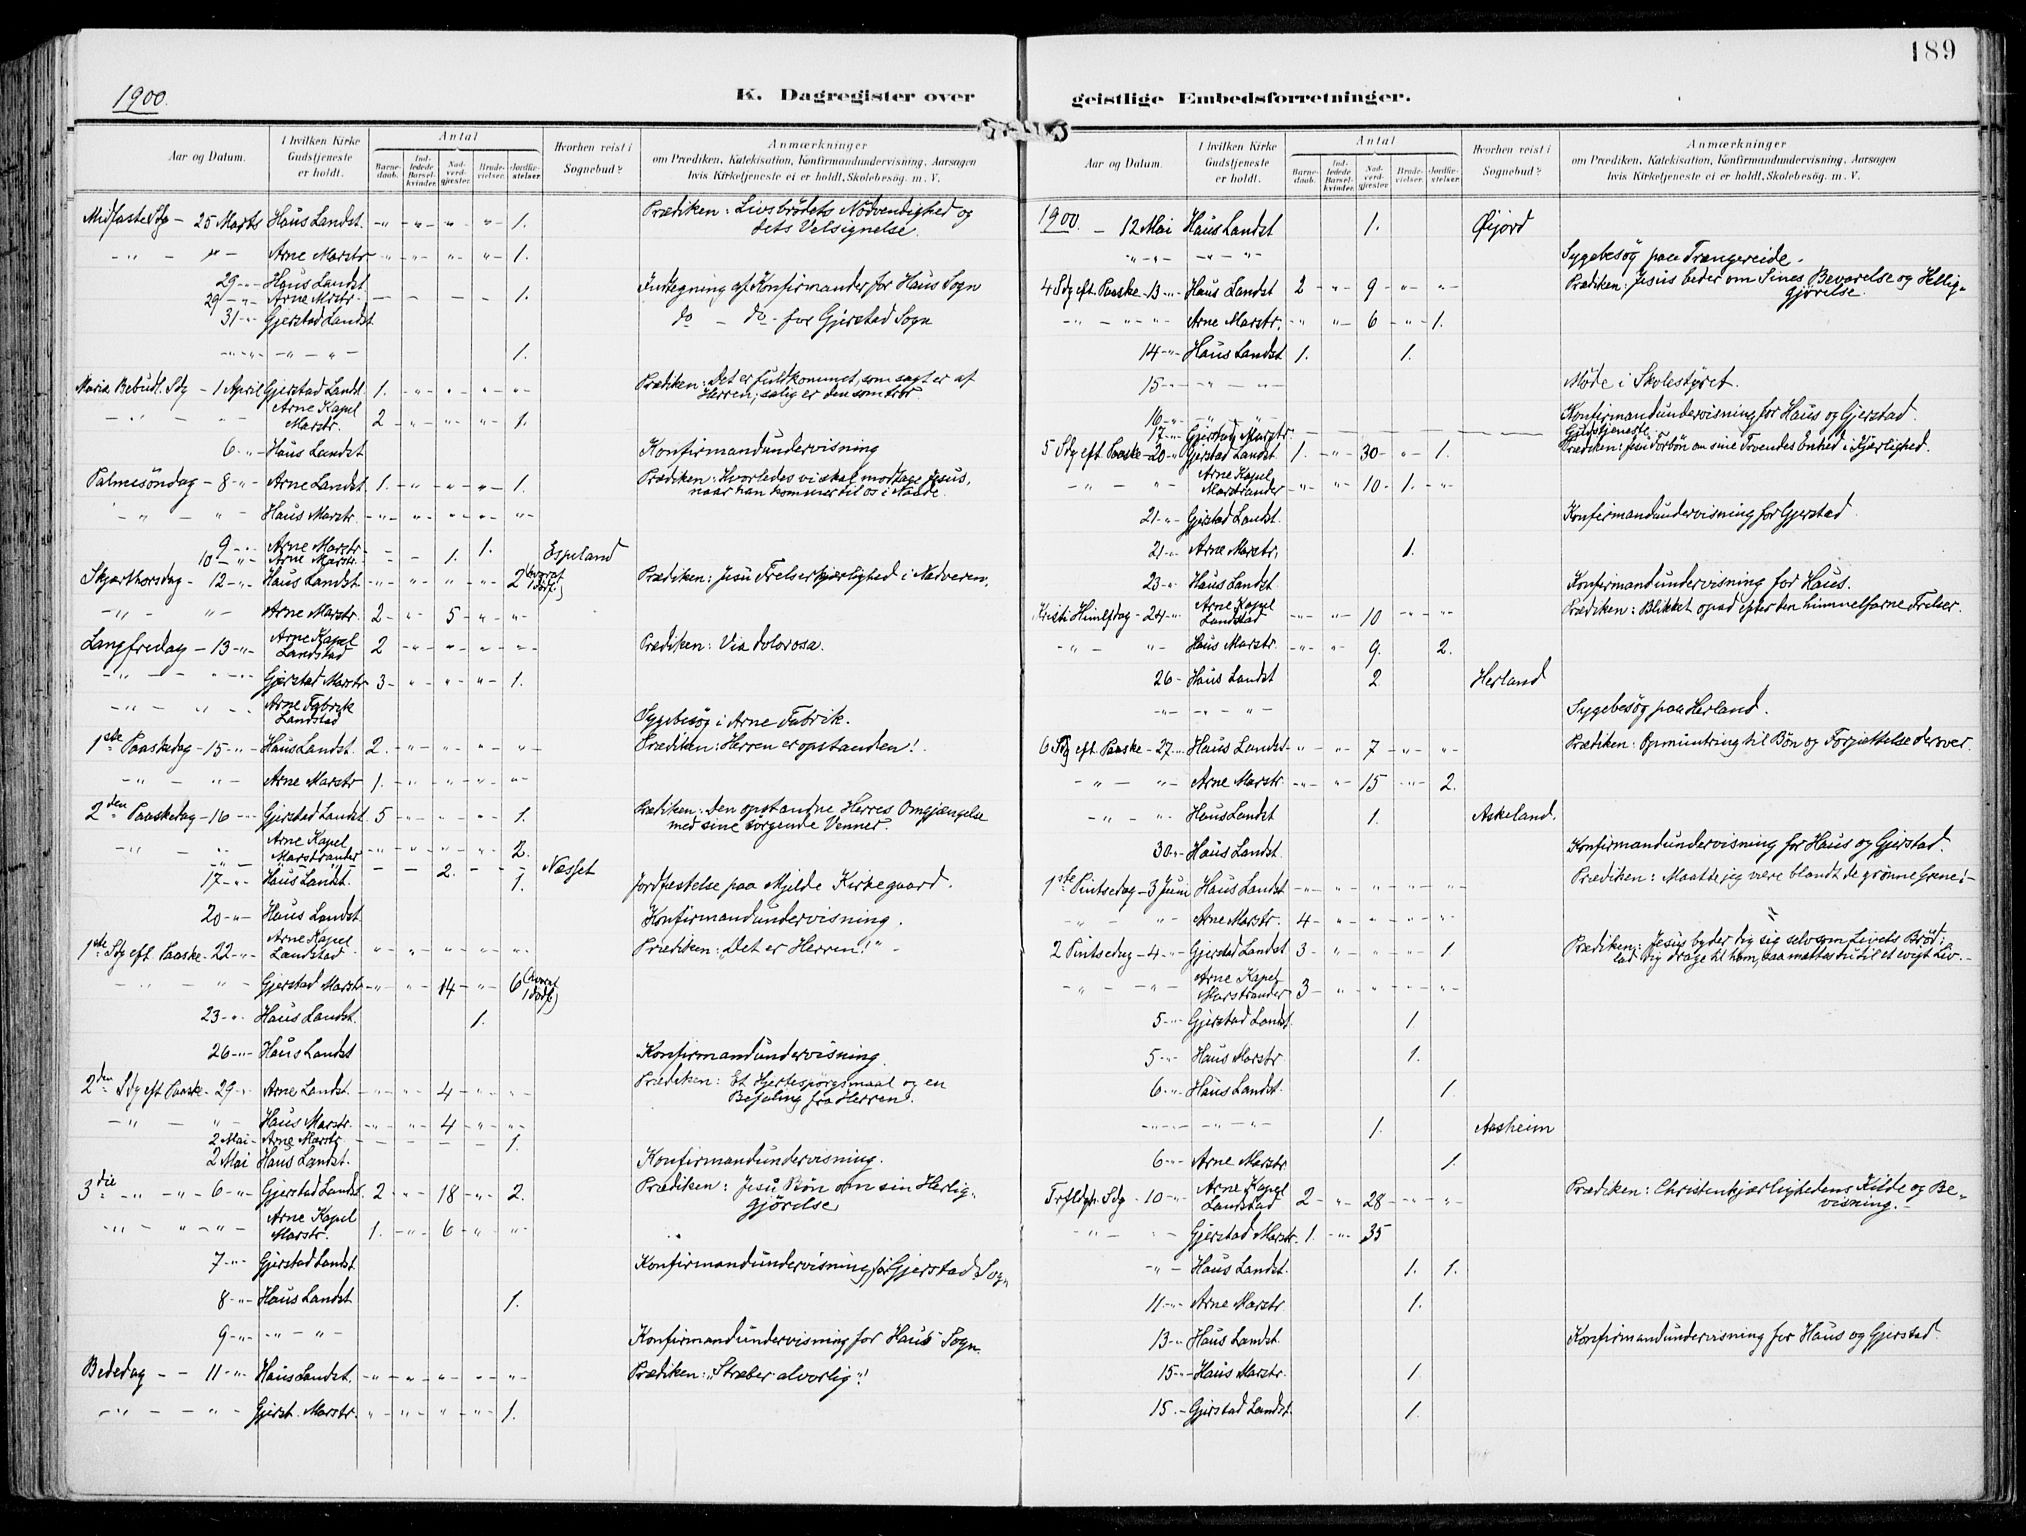 189
1900.
K. Dagregister over geistlige Embedsforretninger.
Aar og Datum. I hvilken Kirke Gudstjeneste er holdt. Antal Barnedaab. Indledede Barselkvinder. Nadverdgjæster. Brudevielser. Jordfæstelser. Hvorhen reist i Sognebud? Anmærkninger om Prædiken, Katekisation, Konfirmandundervisning, Aarsagen hvis Kirketjeneste ei er holdt, Skolebesøg. m. V.
Midfaste Sdg - 25 Marts Haus Landst. -"- -"- " - " - 1. Prædiken: Livsbrødets Nødvendighed og
dets Velsignelse.
- " - " - Arne Marstr -"- -"- -"- " - 1.
29 -"- Haus Landst. Indtegning af Konfirmander for Haus Sogn
29 -"- Arne Mrstr. - - - - 1.
31 -"- Gjerstad Landst do - do - for Gjerstad Sogn
-"-"- -"- " - 1.
Maria Bebudl. Sdg - 1 April Gjerstad Landst. 1. - " - " - " - " - Prædiken: Det er fuldkommet, som sagt er af
Herren; salig er den som tror
- " - " Arne Kapel Marstr. 2 - " - " - " - 1.
6 -"- Haus Landst Konfirmandundervisning
Palmesöndag - 8 -"- Arne Landst. 1. - " - " - " - 1. Prædiken: Hvorledes vi skal modtage Jesus,
naar han kommer til os i Naade.
- " - " - Haus Marstr. - " - " - " - " - " -
9 -"- Arne Marstr. - - - 1.
10 -"- Arne Marstr. - - 1. Espeland
Skjærthorsdag - 12 -"- Haus Landst. - " - " - " - " - 2 (hvoraf 1 dödf.) Prædiken: Jesu Frelserkjærlighed i Nadveren.
- " - " - Arne Marstr. 2 - " - 5 - " - " -
Langfredag - 13 -"- Arne Kapel Landstad 2 - " - " - " - " - Prædiken: Via dolorosa.
- " - " - Gjerstad Marstr. 3 - " - " - " - 1.
- " - " - Arne Fabrik Landstad Sygebesøg i Arne Fabrik.
1ste Paaskedag - 15 -"- Haus Landst. 2. - " - " - " - " - Prædiken: Herren er opstanden!
- " - " - Arne Marstr 1. - " - " - " - " -
2den Paaskedag - 16 -"- Gjerstad Landst. 5 - " - " - " - 1. Prædiken: Den opstandne Herres Omgjængelse
med sine sörgende Venner.
- " - " Arne Kapel Marstrander - " - " - " - " - 2.
- " - - - 2. - - Næsset
17 -"- Haus Landst. 1. Jordfestelse paa Mjelde Kirkegaard.
20 -"- Haus Landst Konfirmandundervisning.
1ste Sdg eft. Paaske - 22 -"- Arne Kapel Landstad " - " - " - " - " - Prædiken: "Det er Herren!" -
- " - " - Gjerstad Marstr - " - " - 14 - " - 6 (hvoraf 1 dödf.)
23 -"- Haus Landst. 1.
26 -"- Haus Landst Konfirmandundervisning.
2den Sdg eft Paaske - 29 -"- Arne Landst. - " - " - 4 - " - " - Prædiken: Et Hjertespörgsmaal og en
Befaling fra Herren.
- " - " - Haus Marstr. - " - " - 4 - " - " -
2 Mai - Arne Marstr - - - - 1.
2 Mai Haus Landst. Konfirmandundervisning.
3die - " - " - 6 -"- Gjerstad Landst. 2 - " - 18 - " - 2. Prædiken: Jesu Bön om sin Herlig-
gjörelse
- " - " - " - Arne Kapel Marstr. 1. - " - 6 - " - " -
7 -"- Gjerstad Landst Konfirmandundervisning for Gjerstad Sogn
8 -"- Haus Landst 1.
9 -"- - " - " - Konfirmandundervisning for Haus Sogn.
Bededag - - 11 -"- Haus Landst. - " - " - " - " - " - Prædiken: "Stræber alvorlig"!
- " - " - Gjerst. Marstr. - " - " - " - " - 1.
Aar og Datum. I hvilken Kirke Gudstjeneste er holdt. Antal Barnedaab. Indledede Barselkvinder. Nadverdgjæster. Brudevielser. Jordfæstelser. Hvorhen reist i Sognebud? Anmærkninger om Prædiken, Katekisation, Konfirmandundervisning, Aarsagen hvis Kirketjeneste ei er holdt, Skolebesøg. m. V.
1900. - 12 Mai Haus Landst 1. Øijord
" - " - - " - " - Sygebesøg paa Trængereide.
4 Sdg eft Paaske - 13 -"- Haus Landst 2 - " - 9 - " - " - Prædiken: Jesus beder om Sines Bevarelse og Hellig-
gjörelse.
- " - " - " Arne Marstr. - " - " - 6 - " - 1.
14 -"- Haus Landst 1. 1.
15 -"- - " - " - Møde i Skolestyret.
16 -"- - " - " - Konfirmandundervisning for Haus og Gjerstad.
17 -"- Gjerstad Marstr. - - - - - Gudstjeneste
5 Sdg eft. Paaske - 20 -"- Gjerstad Landst. 1. - " - 30 - " - 1. Prædiken: Jesu Forbön om sine Troendes Enhed i Kjærlighed.
- " - " - Arne Kapel Marstrander - " - " - 10 - 1. - " -
21 -"- Gjerstad Landst. Konfirmandundervisning for Gjerstad
21 -"- Arne Marstr. 1.
23 -"- Haus Landst. Konfirmandundervisning for Haus.
Kristi Himlfdag - 24 -"- Arne Kapel Landstad - " - " - 10 - " - " - Prædiken: Blikket opad efter den himmelfarne Frelser.
- " - " - Haus Marstr. - " - " - 9. 2.
26 - Haus Landst 2 Herland
- " - - " - " - Sygebesøg paa Herland.
6 Sdg eft Paaske - 27 -"- Haus Landst - " - " - 7 - " - " - Prædiken: Opmuntring til Bön og Forjættelse derover.
- " - " - Arne Marstr. - " - " - 15 - " - 2.
- " - " - Haus Landst 1. Askeland.
30 -"- Haus Landst. Konfirmandundervisning for Haus og Gjerstad.
1ste Pintsedag - 3 Juni Haus Landst - " - " - " - " - " - Prædiken: Maatte jeg være blandt de grønne Grene! -
" - " - Arne Marstr. 4 - " - " - " - " -
2 Pintsedag - 4 -"- Gjerstad Landst 3 - " - " - " - 1. Prædiken: Jesus byder dig sig selv som Livets Bröd;
lad dig drage til ham, saa mættes du til et evigt Liv. -
- " - " - Arne Kapel Marstrander 3 - " - " - " - " -
5 -"- Gjerstad Landst. 1.
5 -"- Haus Marstr 1.
6 -"- Haus Landst. 1.
- " - " - - " - " - 1. Aasheim
6 -"- Arne Marstr 1.
Trefldgh. Sdg - 10 -"- Arne Kapel Landstad 2 - " - 28 - " - " - Prædiken: Christenkjærlighedens Kilde og Be-
visning. -
- " - " - Gjerstad Marstr. 1. - " - 35
- " - Haus Landst. 1. 1.
11 -"- Arne Marstr 1.
13 -"- Haus Landst. Konfirmandundervisning for Haus og Gjerstad
15 -"- Haus Marstr. 1.
15. - Gjerstad Landst. 1.